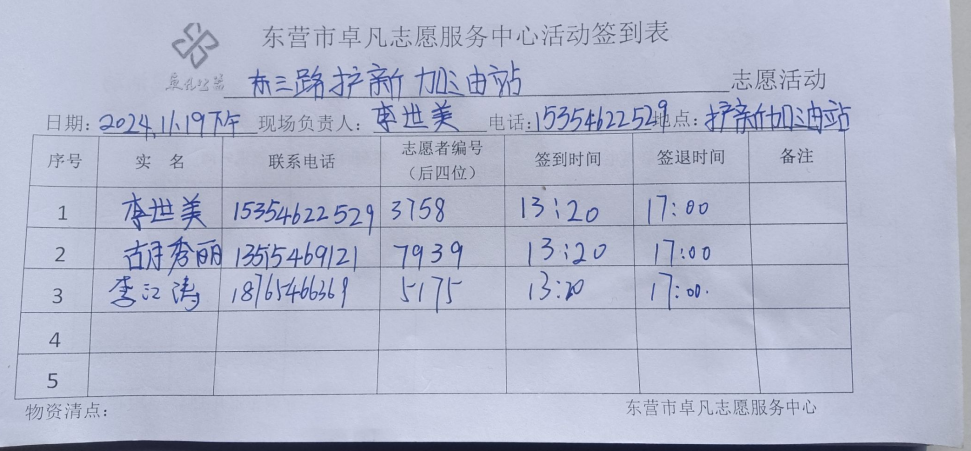 东营市卓凡志愿服务中心活动签到表
卓凡公益
东三路护新加油站 志愿活动
日期: 2024.11.19下午 现场负责人: 李世美 电话: 15354622529 地点: 护新加油站
序号 实 名 联系电话 志愿者编号（后四位） 签到时间 签退时间 备注
1 李世美 15354622529 3758 13:20 17:00
2 胡秀丽 13515469121 7939 13:20 17:00
3 李江涛 18765466369 5175 13:20 17:00.
4
5
物资清点: 东营市卓凡志愿服务中心